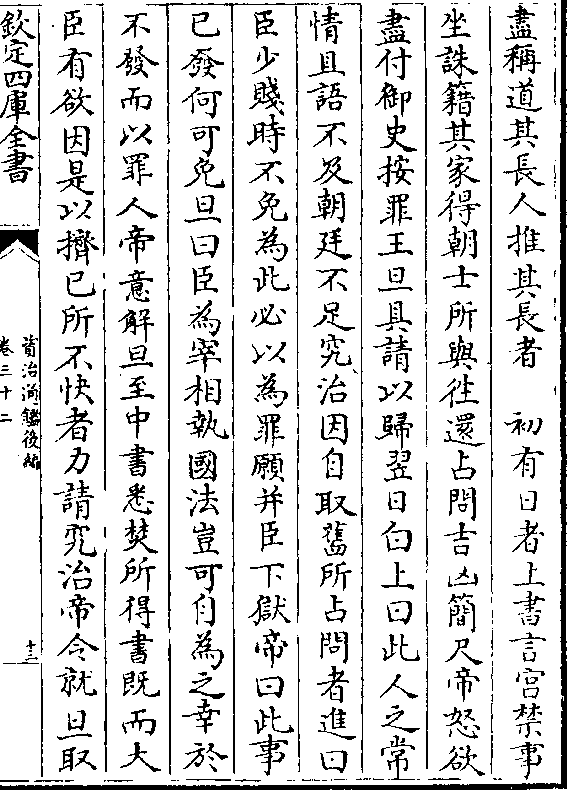 盡稱道其長人推其長者　初有日者上書言宮禁事
坐誅籍其家得朝士所與徃還占問吉凶簡尺帝怒欲
盡付御史按罪王旦具請以歸翌日白上曰此人之常
情且語不及朝廷不足究治因自取舊所占問者進曰
臣少賤時不免為此必以為罪願并臣下獄帝曰此事
已發何可免旦曰臣為宰相執國法豈可自為之幸於
不發而以罪人帝意解旦至中書悉焚所得書既而大
臣有欲因是以擠已所不快者力請究治帝令就旦取
欽定四庫全書
資治通鑑後編
卷三十二
十三